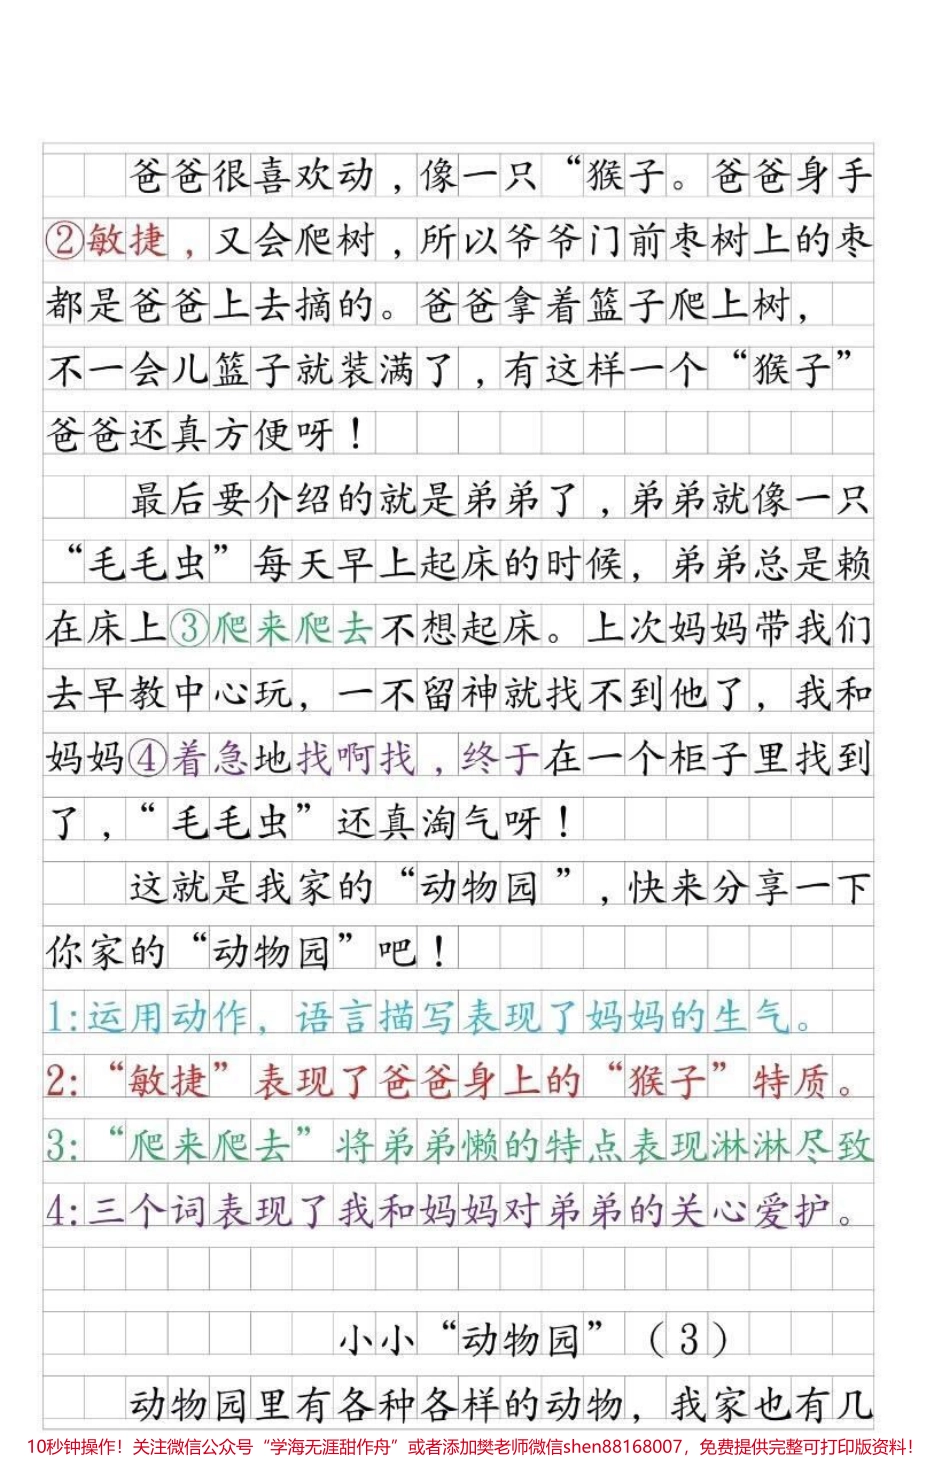 爸爸很喜欢动，像一只“猴子。爸爸身手
②敏捷，又会爬树，所以爷爷门前枣树上的枣
都是爸爸上去摘的。爸爸拿着篮子爬上树，
不一会儿篮子就装满了，有这样一个“猴子”
爸爸还真方便呀！
最后要介绍的就是弟弟了，弟弟就像一只
“毛毛虫”每天早上起床的时候，弟弟总是赖
在床上③爬来爬去不想起床。上次妈妈带我们
去早教中心玩，一不留神就找不到他了，我和
妈妈④着急地找啊找，终于在一个柜子里找到
了，“毛毛虫”还真淘气呀！
这就是我家的“动物园”，快来分享一下
你家的“动物园”吧！
1:运用动作，语言描写表现了妈妈的生气。
2:“敏捷”表现了爸爸身上的“猴子”特质。
3:“爬来爬去”将弟弟懒的特点表现淋淋尽致
4:三个词表现了我和妈妈对弟弟的关心爱护。
小小“动物园”（3）
动物园里有各种各样的动物，我家也有几
10秒钟操作！关注微信公众号“学海无涯甜作舟”或者添加樊老师微信shen88168007，免费提供完整可打印版资料！